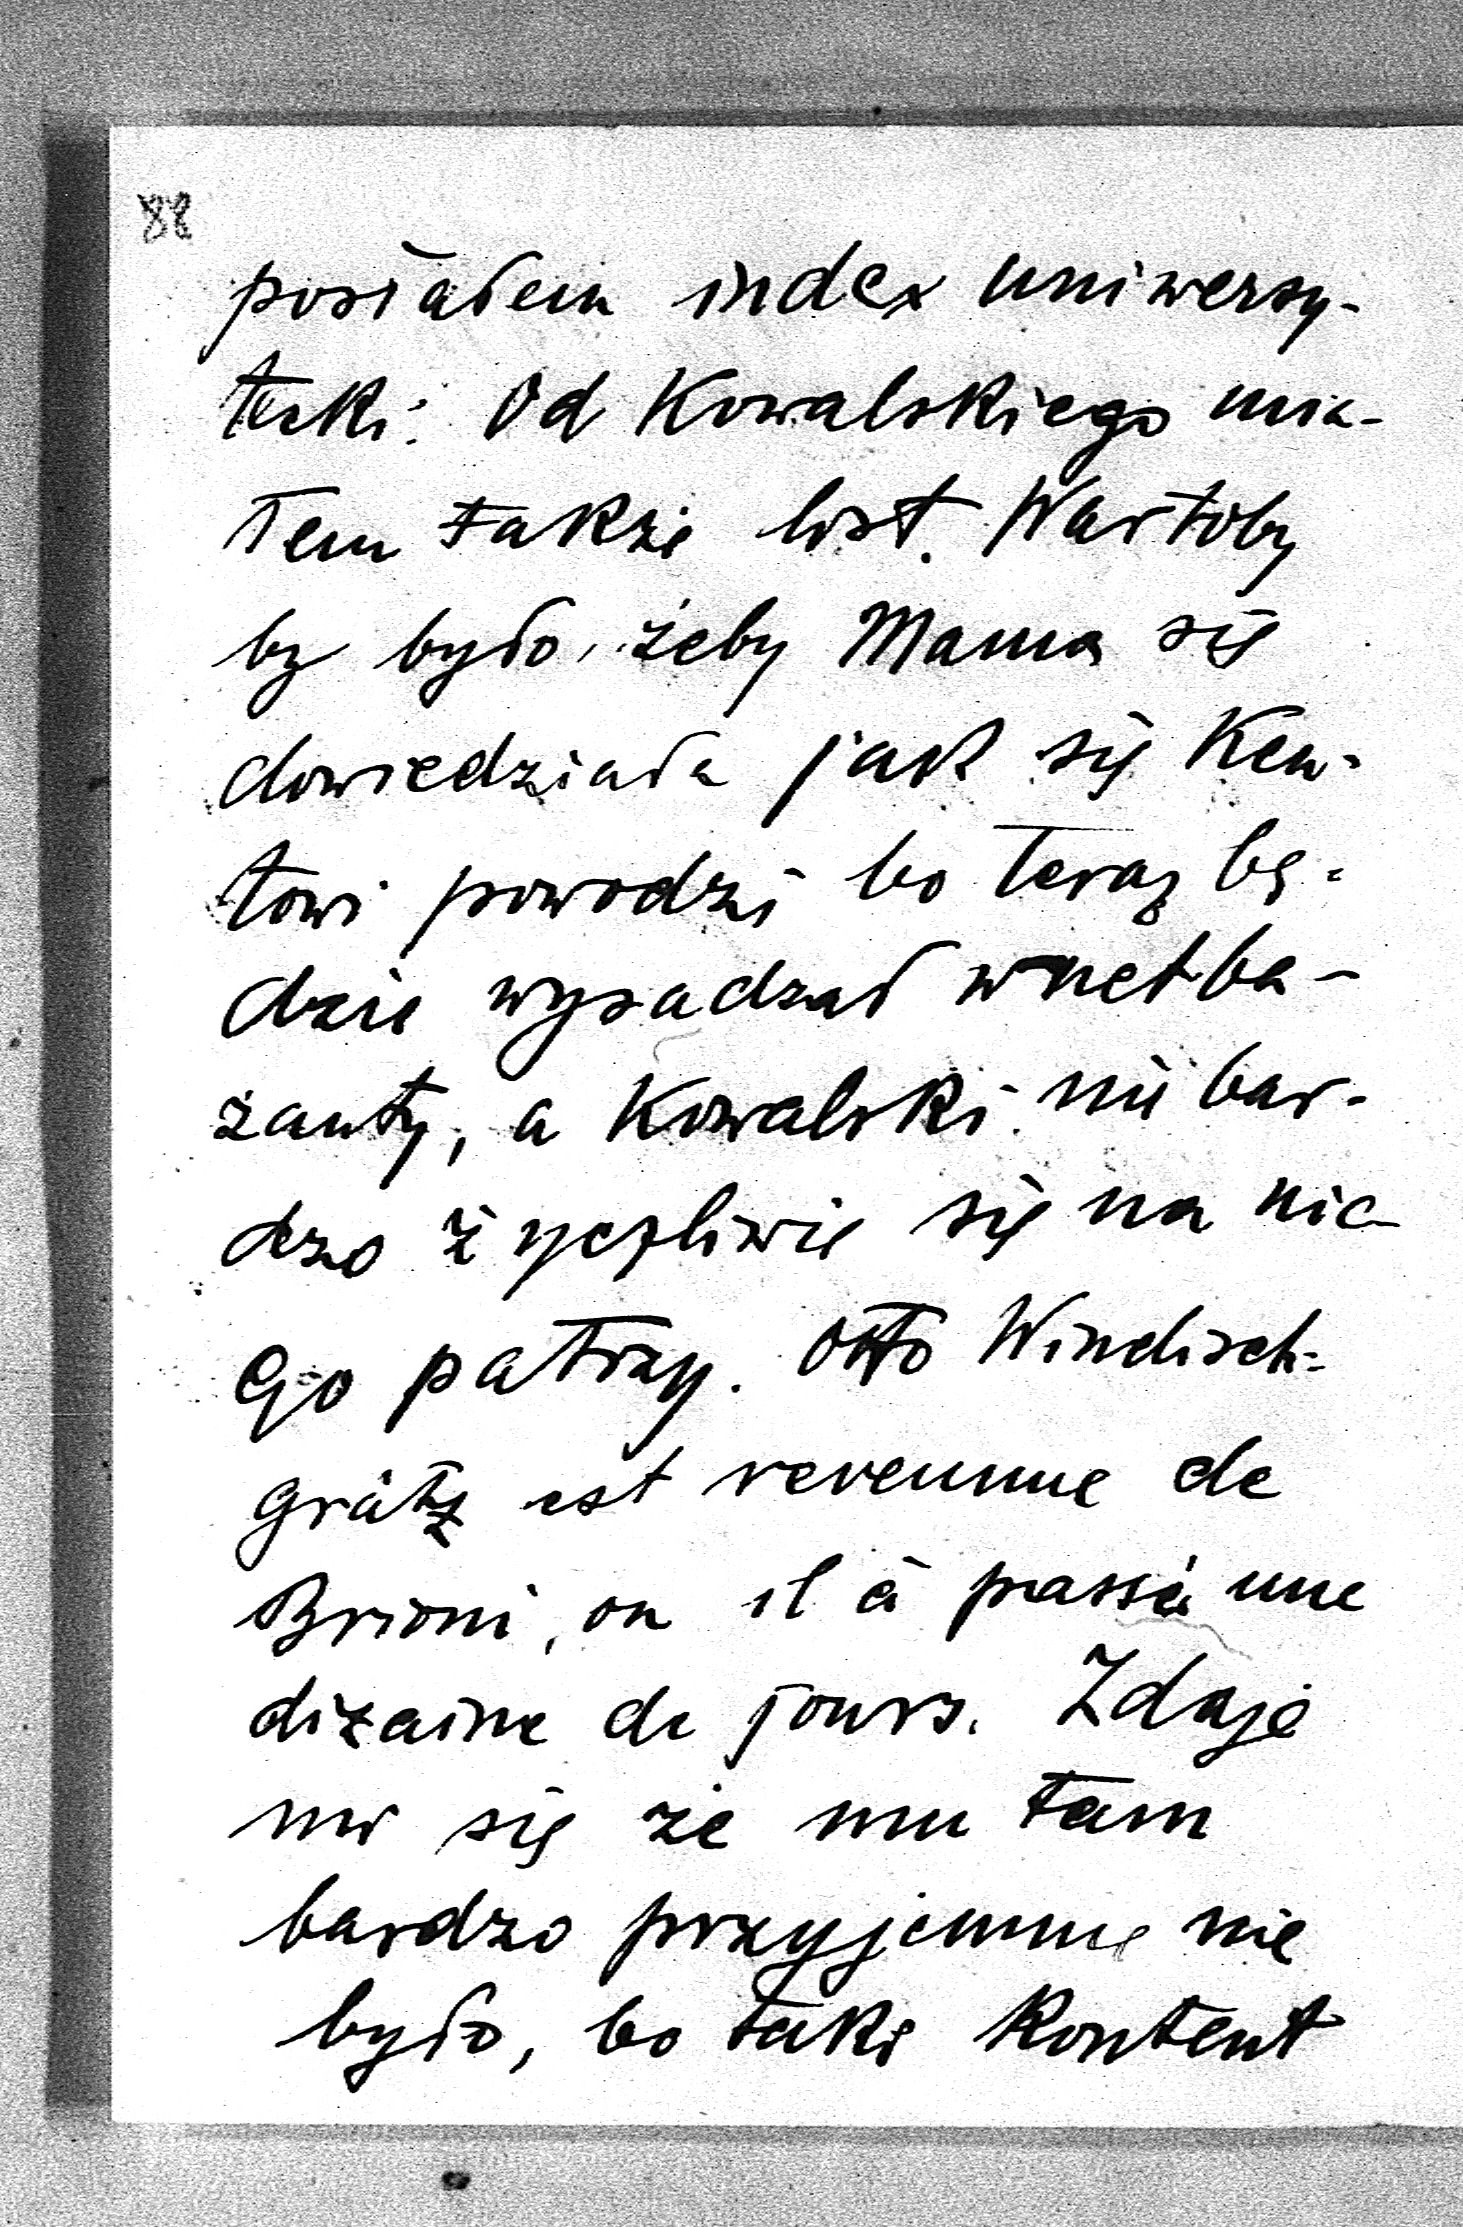 88
posłałem index uniwersy-
tecki. Od Kowalskiego mia-
łem także list. Wartoby
by było, żeby Mama się
dowiedziała jak się Kew-
towi powodzi bo teraz bę-
dzie wysadzał wnet ba-
żanty, a Kowalski nie bar-
dzo życzliwie się na nie-
go patrzy. Otto Windisch-
grätz est revenue de
Brioni, ou il à passé une
dizaine de jours. Zdaje
mi się że mu tam
bardzo przyjemnie nie
było, bo taki kontent